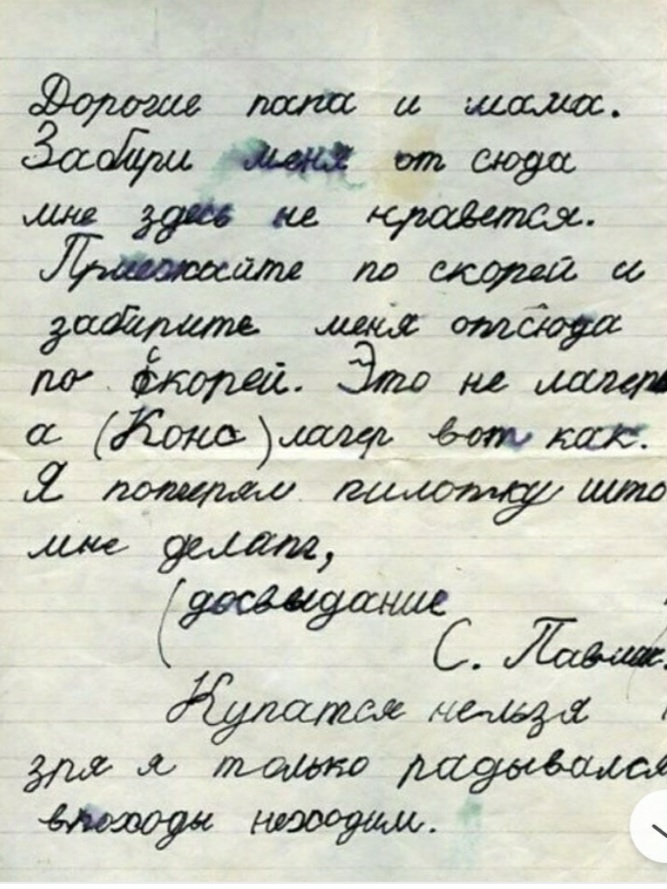 Дорогие папа и мама.
Забири меня от сюда
мне здесь не нравется.
Приезжайте по скорей и
забирите меня отсюда
по скорей. Это не лагерь
а (Конс) лагер вот как.
Я потерял пилотку што
мне делат,
(досвыдание
С.
Купатся нельзя
зря я только радывался
впоходы неходим.